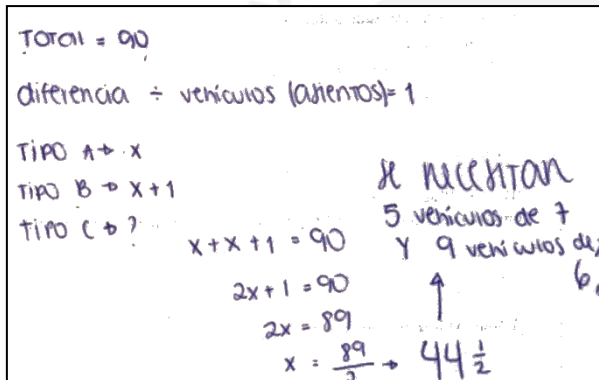 Total = 90
diferencia ÷ vehiculos (asientos)= 1
Tipo A → x
Tipo B → x + 1
Tipo C → ?
x + x + 1 = 90
2x + 1 = 90
2x = 89
x = 89/2 → 44 1/2
se necesitan
5 vehiculos de 7
y 9 vehiculos de
6.